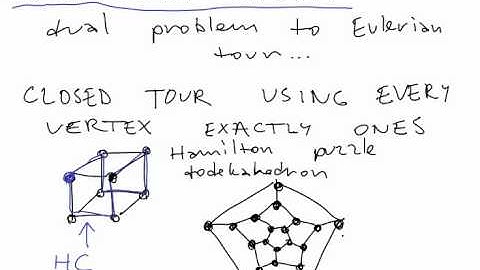 dual problem to Eulerian
tour...
CLOSED TOUR USING EVERY
VERTEX EXACTLY ONES
Hamilton puzzle
dodekahedron
HC